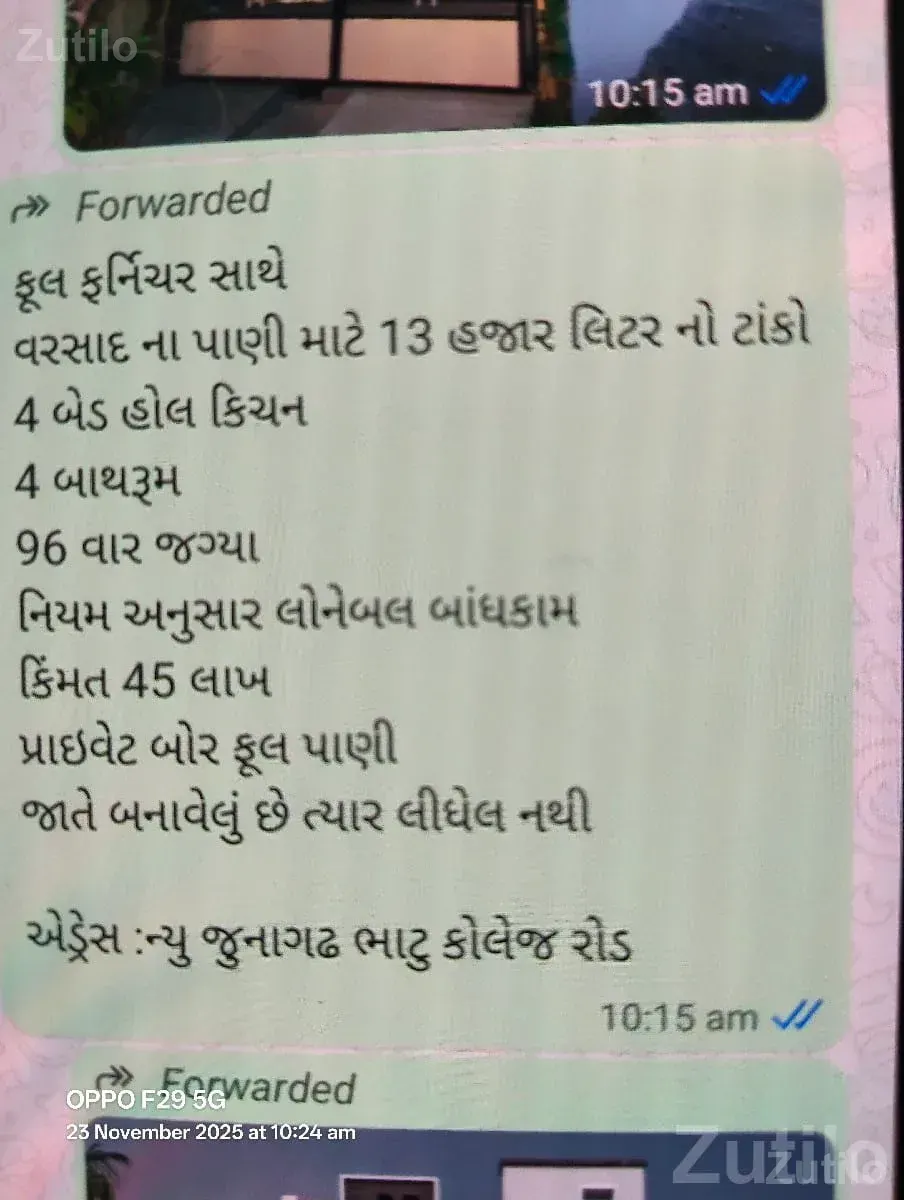 Zutilo
10:15 am
Forwarded
ફૂલ ફર્નિચર સાથે
વરસાદ ના પાણી માટે 13 હજાર લિટર નો ટાંકો
4 બેડ હોલ કિચન
4 બાથરૂમ
96 વાર જગ્યા
નિયમ અનુસાર લોનેબલ બાંધકામ
કિંમત 45 લાખ
પ્રાઇવેટ બોર ફૂલ પાણી
જાતે બનાવેલું છે ત્યાર લીધેલ નથી
એડ્રેસ :ન્યુ જુનાગઢ ભાટુ કોલેજ રોડ
10:15 am
Forwarded
OPPO F29 5G
23 November 2025 at 10:24 am
Zutilo
Zutilo